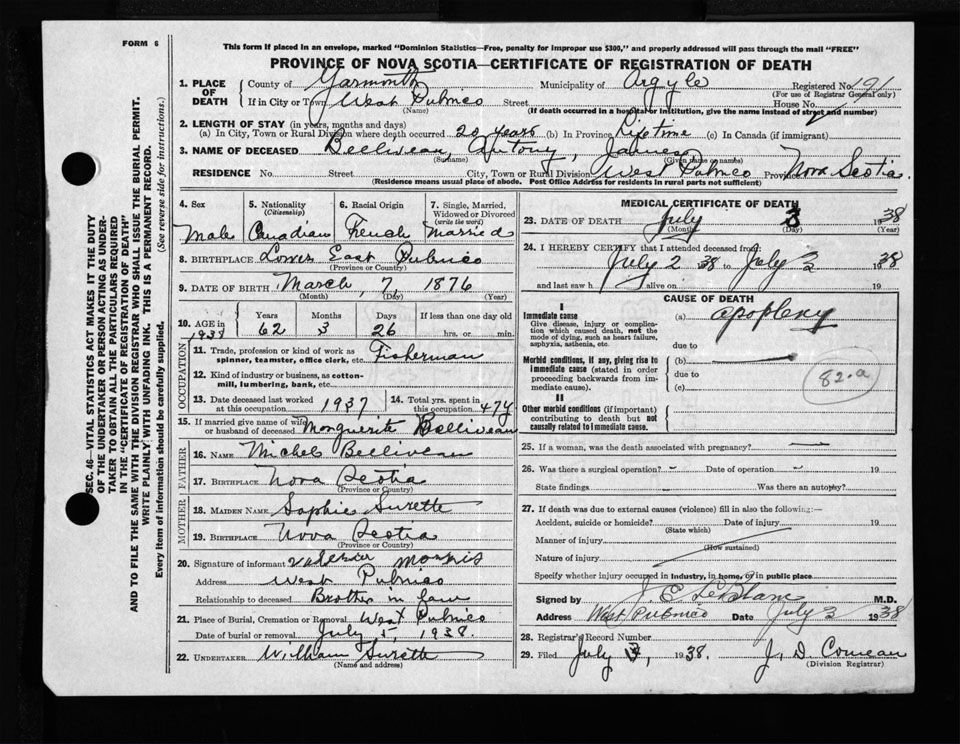 FORM 6
This form if placed in an envelope, marked "Dominion Statistics—Free, penalty for improper use $300," and properly addressed will pass through the mail "FREE"
PROVINCE OF NOVA SCOTIA—CERTIFICATE OF REGISTRATION OF DEATH
1. PLACE OF DEATH County of Yarmouth Municipality of Argyle Registered No. 191
(For use of Registrar General only)
If in City or Town West Pubnico Street House No.
(Name) (If death occurred in a hospital or institution, give the name instead of street and number)
2. LENGTH OF STAY (in years, months and days)
(a) In City, Town or Rural Division where death occurred 20 years (b) In Province Lifetime (c) In Canada (if immigrant)
3. NAME OF DECEASED Belliveau, Antony, James
(Surname) (Given name or names)
RESIDENCE No. Street City, Town or Rural Division West Pubnico Province Nova Scotia.
(Residence means usual place of abode. Post Office Address for residents in rural parts not sufficient)
4. Sex 5. Nationality (Citizenship) 6. Racial Origin 7. Single, Married, Widowed or Divorced (write the word)
Male Canadian French Married
8. BIRTHPLACE Lower East Pubnico
(Province or Country)
9. DATE OF BIRTH March, 7, 1876
(Month) (Day) (Year)
10. AGE in 1938 Years Months Days If less than one day old
62 3 26 hrs. or min.
OCCUPATION
11. Trade, profession or kind of work as spinner, teamster, office clerk, etc. Fisherman
12. Kind of industry or business, as cotton-mill, lumbering, bank, etc.
13. Date deceased last worked at this occupation 1937 14. Total yrs. spent in this occupation 47y
15. If married give name of wife or husband of deceased Monguerite Belliveau
FATHER
16. NAME Michel Belliveau
17. BIRTHPLACE Nova Scotia
(Province or Country)
MOTHER
18. MAIDEN NAME Sophie Surette
19. BIRTHPLACE Nova Scotia
(Province or Country)
20. Signature of informant Morris
Address West Pubnico
Relationship to deceased Brother in law
21. Place of Burial, Cremation or Removal West Pubnico
Date of burial or removal July 5, 1938.
22. UNDERTAKER William Surette
(Name and address)
MEDICAL CERTIFICATE OF DEATH
23. DATE OF DEATH July 3 1938
(Month) (Day) (Year)
24. I HEREBY CERTIFY that I attended deceased from:
July 2 38 to July 3 1938
and last saw h alive on 19
CAUSE OF DEATH
I
Immediate cause (a) apoplexy
Give disease, injury or complication which caused death, not the mode of dying, such as heart failure, asphyxia, asthenia, etc.
due to
Morbid conditions, if any, giving rise to immediate cause (stated in order proceeding backwards from immediate cause). (b)
due to
(c)
82.a
II
Other morbid conditions (if important) contributing to death but not causally related to immediate cause.
25. If a woman, was the death associated with pregnancy?
26. Was there a surgical operation? – Date of operation – 19
State findings Was there an autopsy?
27. If death was due to external causes (violence) fill in also the following:—
Accident, suicide or homicide? Date of injury 19
(State which)
Manner of injury
(How sustained)
Nature of injury
Specify whether injury occurred in industry, in home, or in public place
Signed by J E LeBlanc M.D.
Address West Pubnico Date July 3 1938
28. Registrar's Record Number
29. Filed July 1938. J. D. Comeau
(Division Registrar)
SEC. 46—VITAL STATISTICS ACT MAKES IT THE DUTY
OF THE UNDERTAKER OR PERSON ACTING AS UNDER-
TAKER TO OBTAIN ALL THE PARTICULARS REQUIRED
IN THE "CERTIFICATE OF REGISTRATION OF DEATH"
AND TO FILE THE SAME WITH THE DIVISION REGISTRAR WHO SHALL ISSUE THE BURIAL PERMIT.
WRITE PLAINLY WITH UNFADING INK. THIS IS A PERMANENT RECORD.
Every item of information should be carefully supplied. (See reverse side for instructions.)